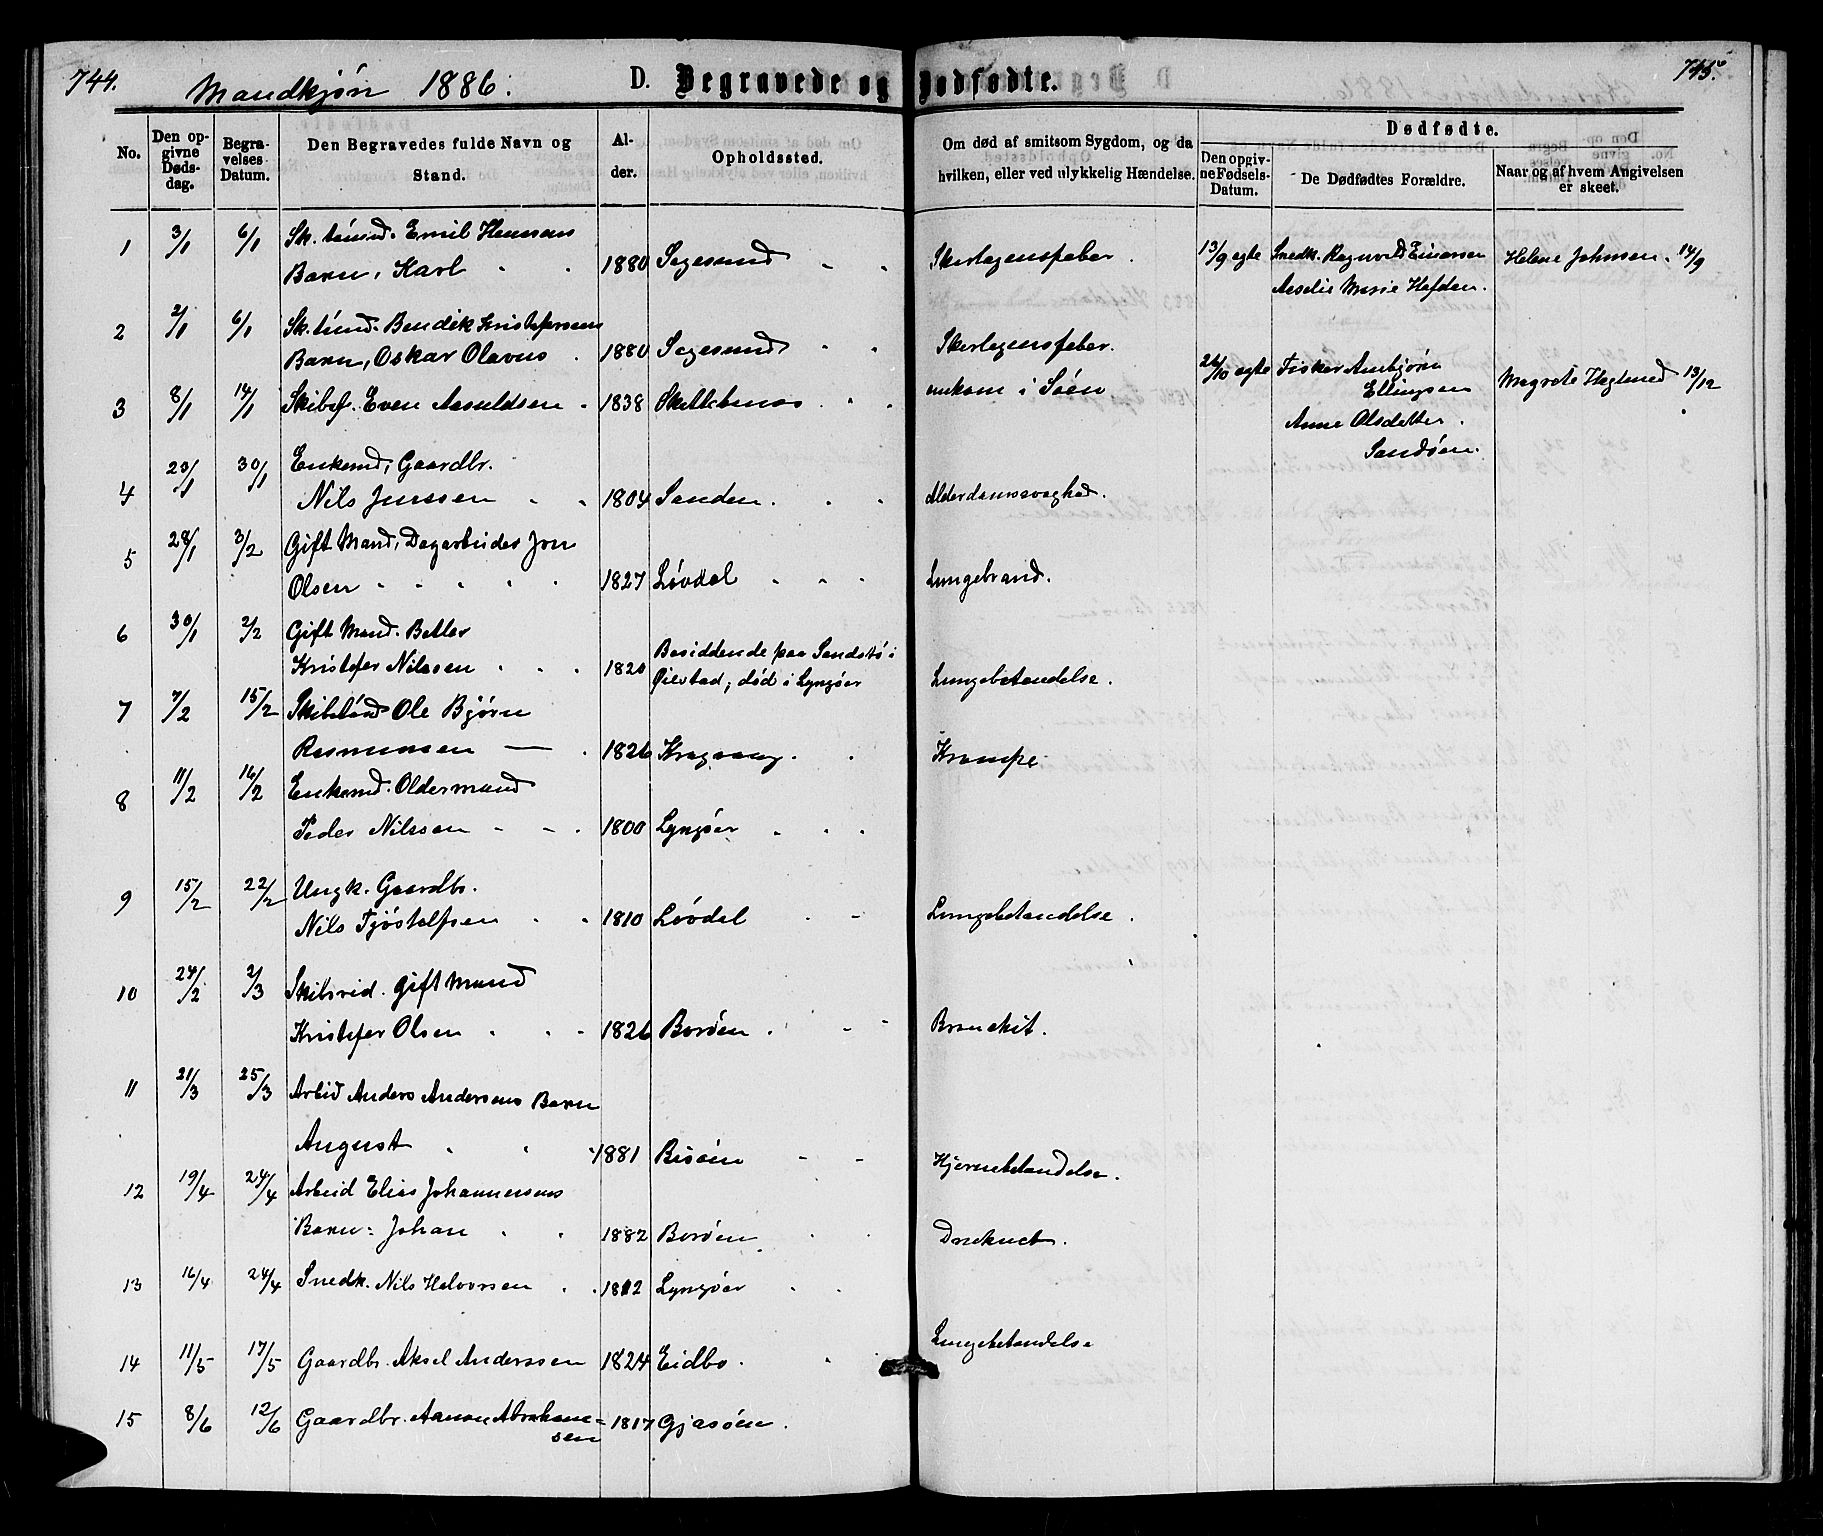 744.
Mandkjøn 1886.
D. Begravede og Dødfødte.
745.
No.
Den op-
givne
Døds-
dag.
Begra-
velses
Datum.
Den Begravedes fulde Navn og
Stand.
Al-
der.
Opholdssted.
Om død af smitsom Sygdom, og da
hvilken, eller ved ulykkelig Hændelse.
Dødfødte.
Den opgiv-
ne Fødsels-
Datum.
De Dødfødtes Forældre.
Naar og af hvem Angivelsen
er skeet.
1 3/1 6/1 Sk. tømd. Emil Hansens
Barn, Karl 1880 Sagesund Skarlagensfeber.
13/9 ægte Snedk. Ragnvald Einersen Helene Johnsen. 14/9
Marie Høfden.
2 2/1 6/1 Sk. tømd. Bendik Kristofersens
Barn, Oskar Olavus 1880 Sagesund Skarlagensfeber.
26/10 ægte Fisker Anbjørn Margrete Haglund 13/12
Ellingsen
Anne Olsdatter.
Sandøen.
3 8/1 14/1 Skibsf. Even Aasuldsen 1838 omkom i Søen
4 23/1 30/1 Enkemd, Gaardbr.
Nils Jenssen 1804 Sanden. Alderdomssvaghed.
5 28/1 3/2 Gift Mand, Dagarbeider Jon
Olsen 1827 Løvdal Lungebrand.
6 30/1 2/2 Gift Mand. Betler
Kristofer Nilssen 1820 Besiddende paa Sandstø i
Øiestad; død i Lyngøer Lungebetændelse.
7 7/2 15/2 Skibstømd Ole Bjørn
Rasmussen 1826 Kragvaag. Krampe
8 11/2 16/2 Enkemd. Oldermand
Peder Nilssen 1800 Lyngøer
9 15/2 22/2 Ungk. Gaardbr.
Nils Tjøstelfsen 1810 Løvdal Lungebetændelse.
10 24/2 2/3 Skibsrid. gift Mand
Kristofer Olsen 1826 Borøen. Bronchit.
11 21/3 25/3 Arbeid Anders Andersens Barn
August 1881 Risøen Hjernebetændelse.
12 19/4 24/4 Arbeid Elias Johannesens
Barn: Johan 1882 Borøen Druknet.
13 16/4 24/4 Snedk. Nils Halvorsen 1812 Lyngøer
14 11/5 17/5 Gaardbr. Aksel Anderssen 1824 Eidbo. Lungebetændelse
15 8/6 12/6 Gaardbr. Aanon Abraham-
sen 1817 Gjæsøen.